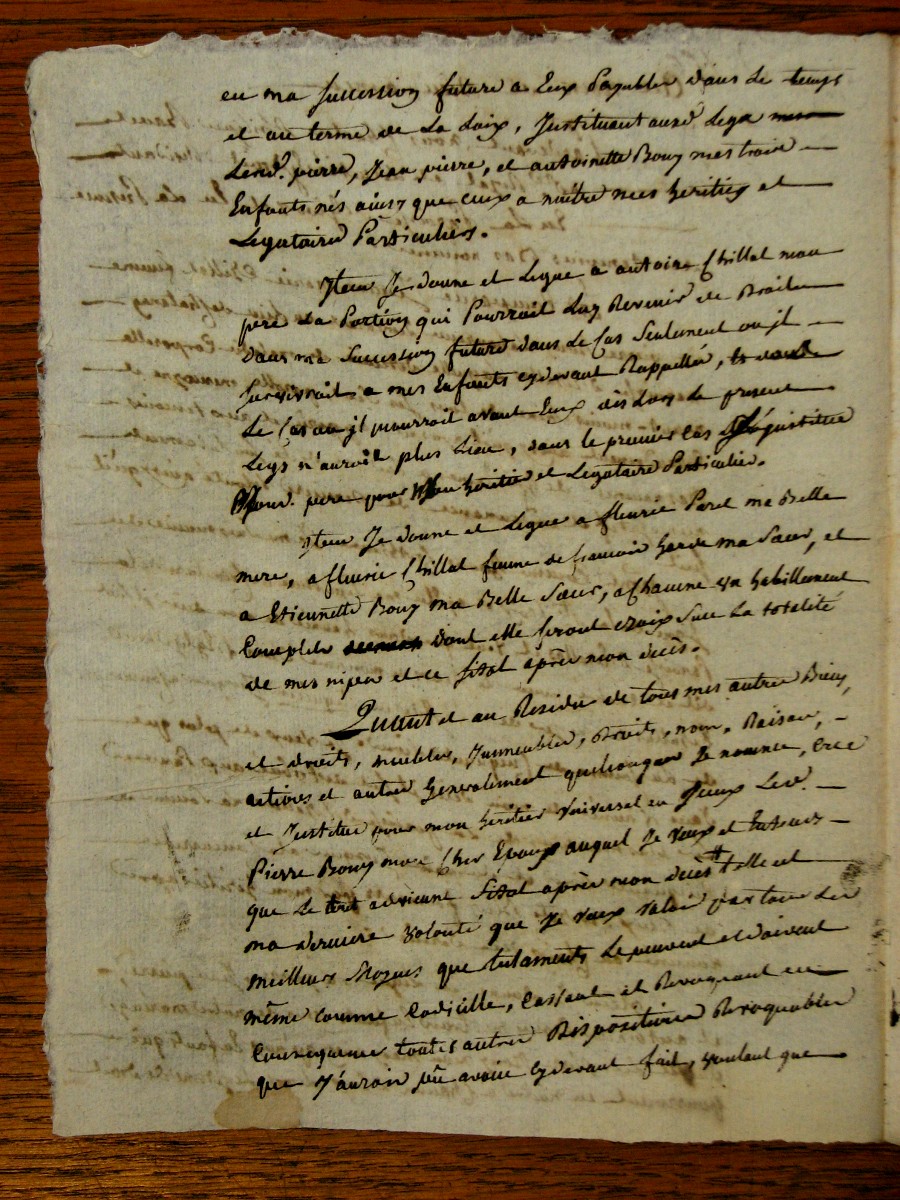 en ma succession future a Eux Payables dans Le temps
et au terme de La Loix, Instituant aux d. Legs mes
Lesd.s pierre, Jean pierre, et antoinette Bouy mes trois
Enfants nés ainsy que ceux a naître mes heritiers et
Legataires Particuliers.
Item Je donne et Legue a antoine Chillat mon
pere La Portion qui Pourrait Luy Revenir de Droit
dans ma Succession future dans Le Cas Seulement ou il
survivrait a mes Enfants cydevant Rappellés, et dans
Le Cas ou il mourroit avant Eux dès Lors Le present
Legs n'auroit plus Lieu, dans le premier Cas J'institue
mond. pere pour Mon heritier et Legataire Particulier.
Item Je donne et Legue a fleurie Paret ma Belle
mere, a fleurie Chillat femme de francois ma Sœur, et
a Etiennette Bouy ma Belle Sœur, a Chacune un habillement
Complet dont elle feront choix Sur La totalité
de mes nipes et ce sitot après mon decès.
Quant et au Residu de tous mes autres Biens,
et droits, meubles, Immeubles, Droits, noms, Raisons,
actions et autres Generalement quelconques Je nomme, Crée
et Institue pour mon heritier Universel en Iceux Led.
Pierre Bouy mon Cher Epoux auquel Je veux et Entends
que Le tout advienne Sitot après mon decès telle est
ma derniere volonté que Je veux valoir par tous Les
meilleurs Moyens que testaments Le peuvent et doivent
même comme Codicille, Cassant et Revoquant en
Consequence toutes autres Dispositions Revoquables
que J'aurois pû avoir cydevant fait, voulant que